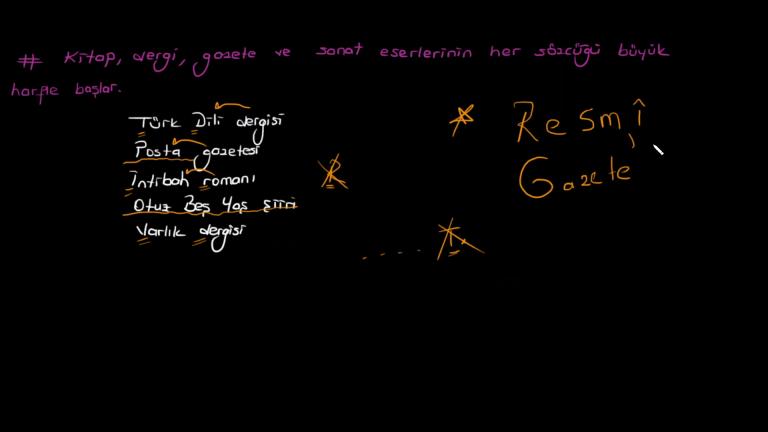 # Kitap, dergi, gazete ve sanat eserlerinin her sözcüğü büyük
harfle başlar.
Türk Dili dergisi
Posta gazetesi
İntibah romanı
Otuz Beş Yaş şiiri
Varlık dergisi
* Resmî
Gazete
R